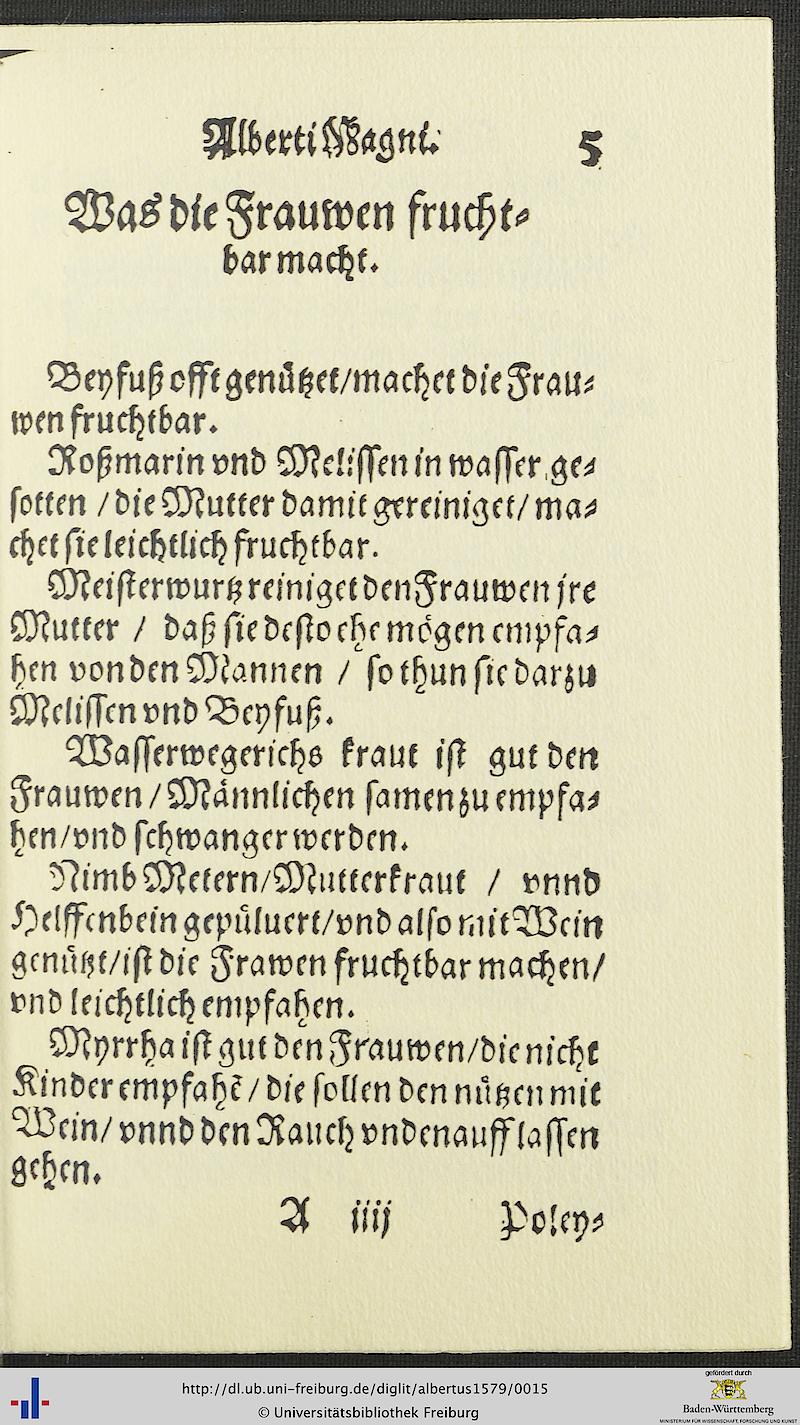 Alberti Magni.
5
Was die Frauwen frucht-
bar macht.
Beyfuß offt genützet/machet die Frau-
wen fruchtbar.
Roßmarin vnd Melissen in wasser ge-
sotten / die Mutter damit gereiniget/ ma-
chet sie leichtlich fruchtbar.
Meisterwurtz reiniget den Frauwen jre
Mutter / daß sie desto ehe mögen empfa-
hen von den Mannen / so thun sie darzu
Melissen vnd Beyfuß.
Wasserwegerichs kraut ist gut den
Frauwen / Männlichen samen zu empfa-
hen/vnd schwanger werden.
Nimb Metern/Mutterkraut / vnnd
Helffenbein gepüluert/vnd also mit Wein
genützt/ist die Frawen fruchtbar machen/
vnd leichtlich empfahen.
Myrrha ist gut den Frauwen/die nicht
Kinder empfahē / die sollen den nützen mit
Wein/ vnnd den Rauch vnden auff lassen
gehen.
A iiij
Poley-
http://dl.ub.uni-freiburg.de/diglit/albertus1579/0015
© Universitätsbibliothek Freiburg
gefördert durch
Baden-Württemberg
MINISTERIUM FÜR WISSENSCHAFT, FORSCHUNG UND KUNST